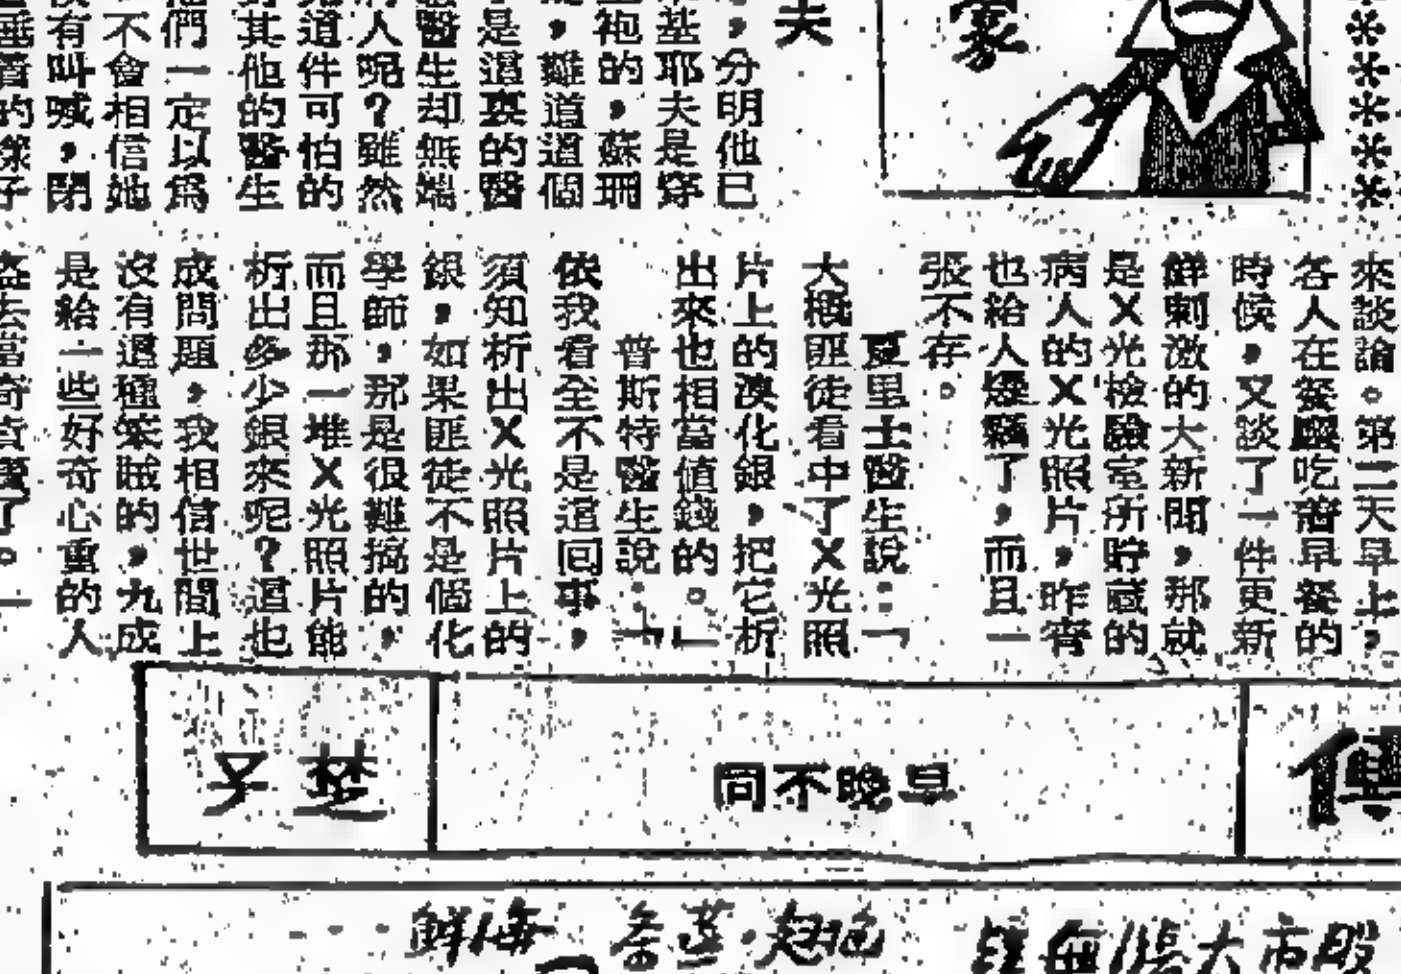 夫
家
，分明他已
基耶夫是穿
袍的，蘇珊
，難道這個
是這裏的醫
醫生却無端
人呢？雖然
道件可怕的
其他的醫生
他們一定以為
不會相信她
有叫喊，閉
垂着的樣子
來談論。第二天早上，
各人在餐廳吃着早餐的
時候，又談了一件更新
鮮刺激的大新聞，那就
是X光檢驗室所貯藏的
病人的X光照片，昨宵
也給人爆竊了，而且一
張不存。
夏里士醫生說：「
大概匪徒看中了X光照
片上的溴化銀，把它析
出來也相當值錢的。」
普斯特醫生說：「
依我看全不是這回事，
須知析出X光照片上的
銀，如果匪徒不是個化
學師，那是很難搞的，
而且那一堆X光照片能
析出多少銀來呢？這也
成問題，我相信世間上
沒有這種笨賊的，九成
是給一些好奇心重的人
盜去當奇貨賣了。一
傅
早晚不同
子
股市大
海鮮